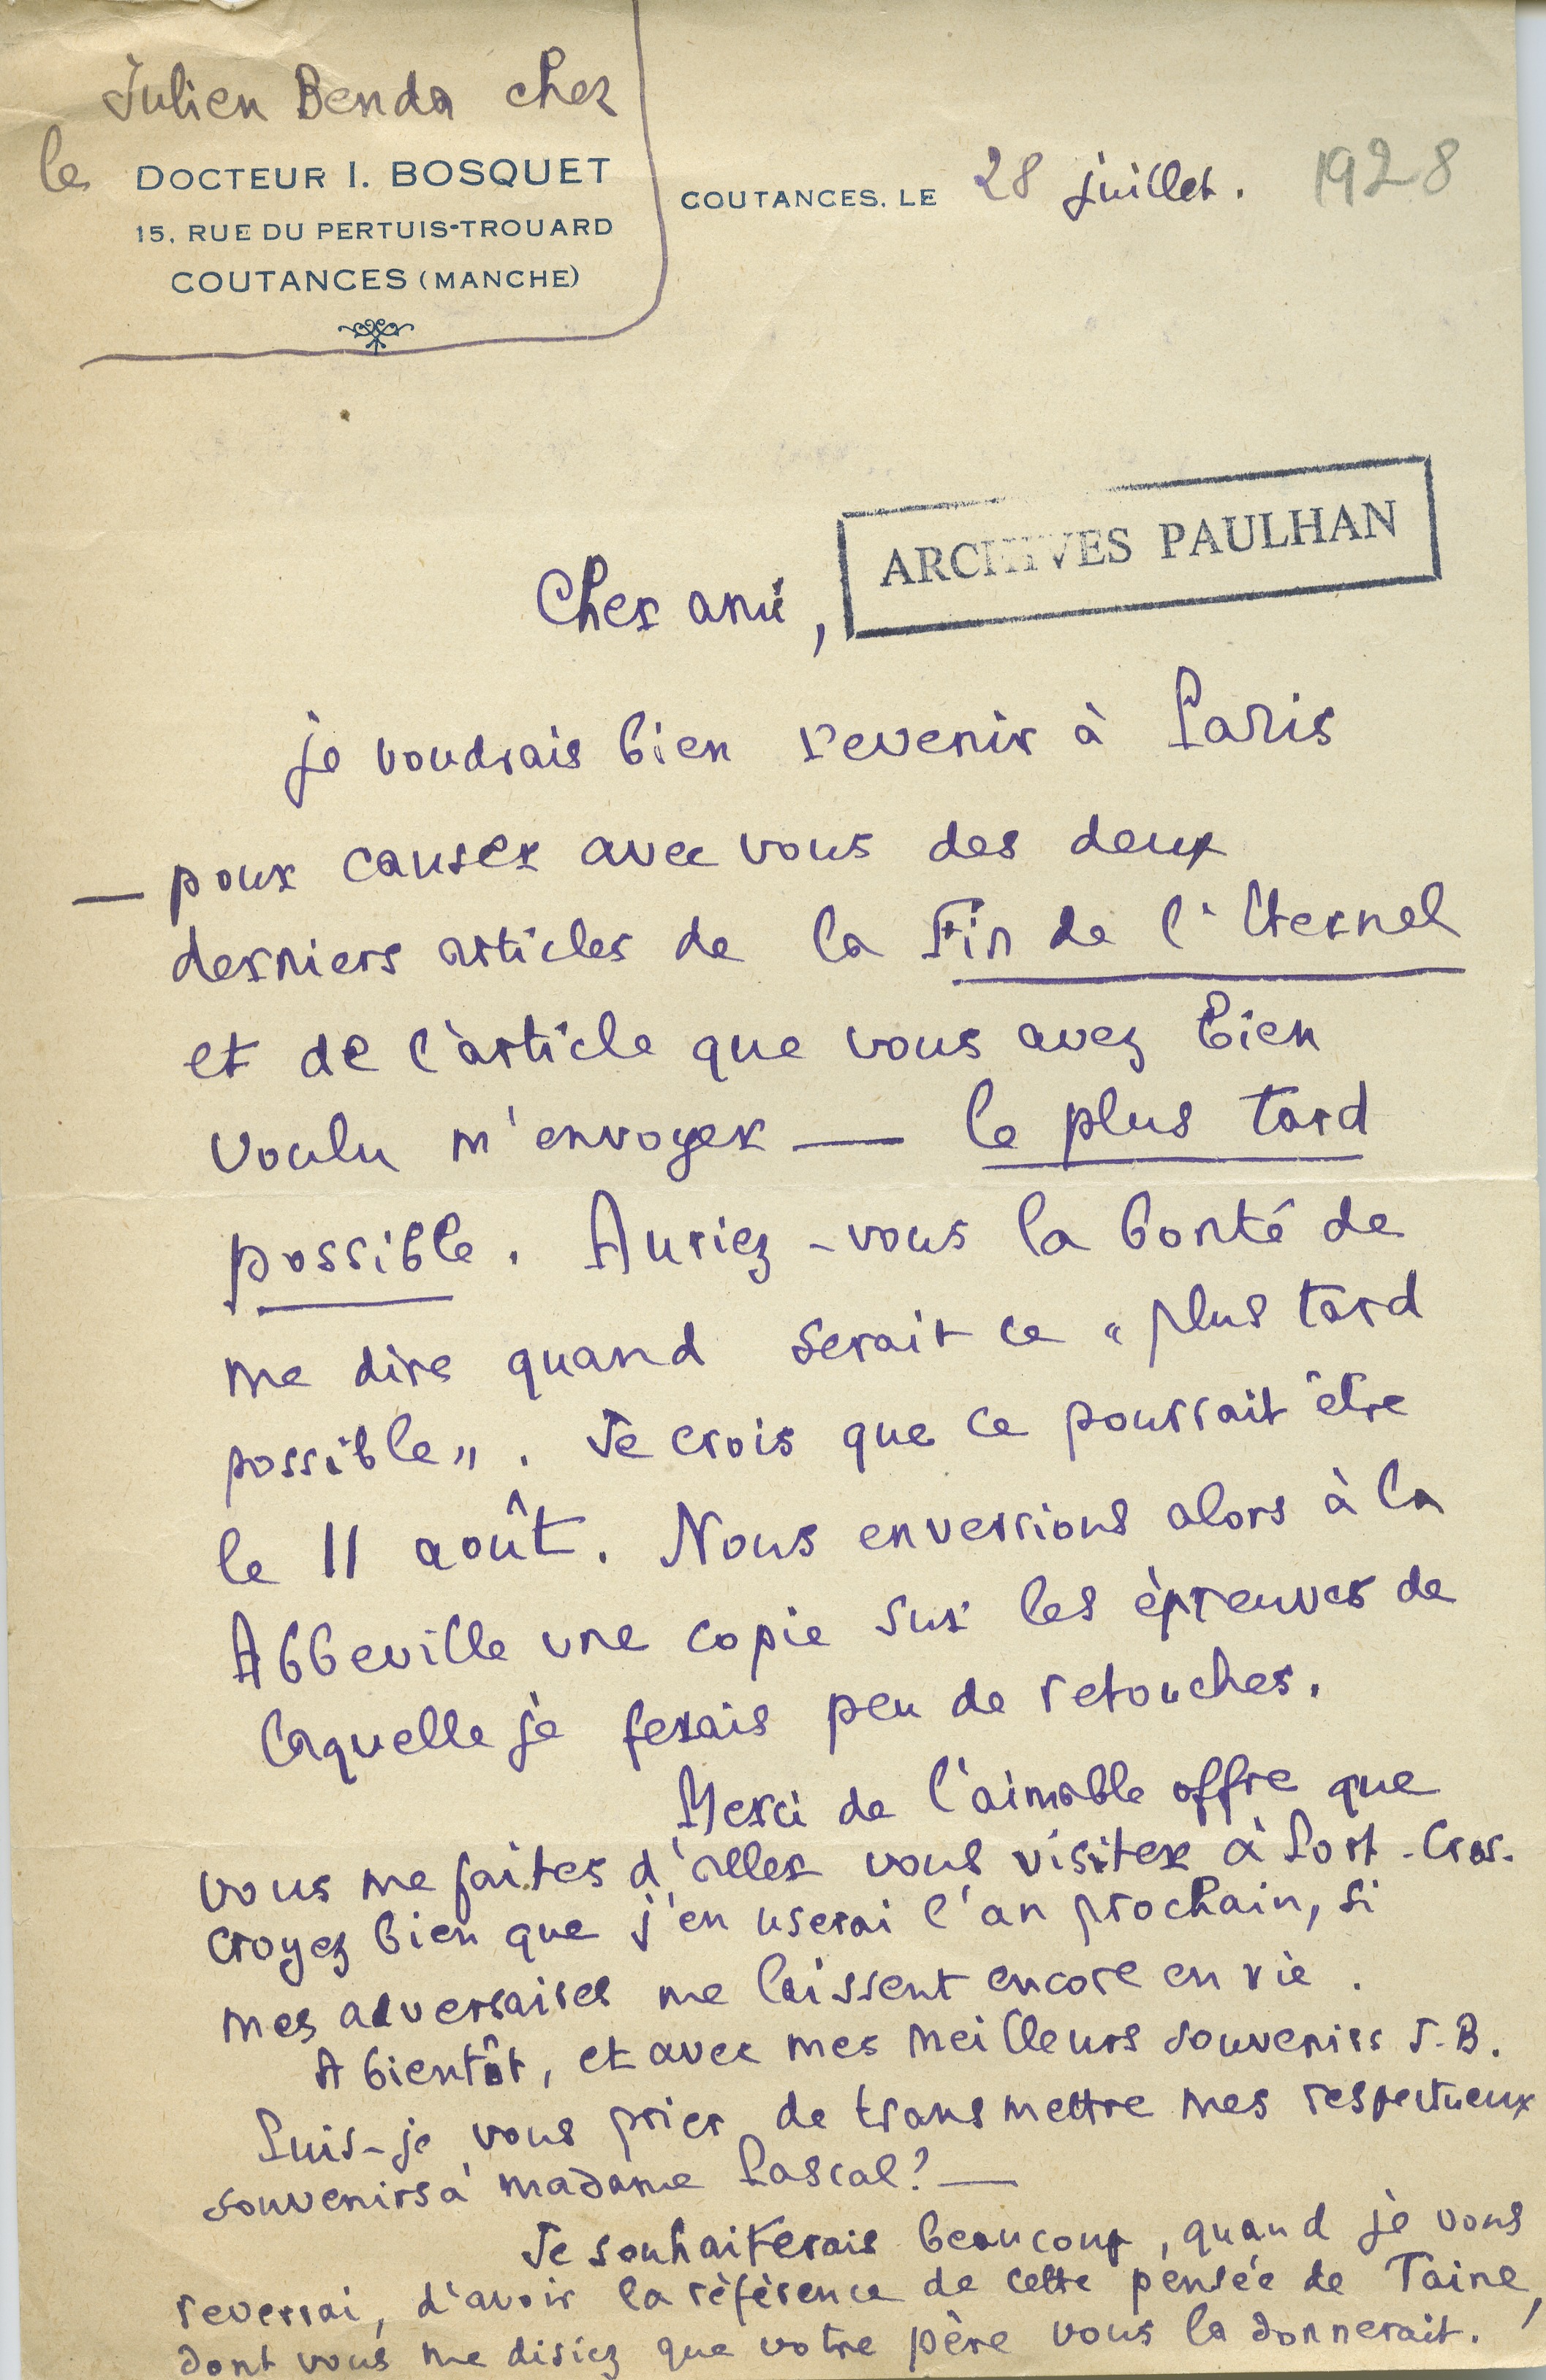 Julien Benda chez
le DOCTEUR I. BOSQUET
15, RUE DU PERTUIS-TROUARD
COUTANCES (MANCHE)
COUTANCES, LE 28 juillet. 1928
ARCHIVES PAULHAN
Cher ami,
je voudrais bien revenir à Paris
— pour causer avec vous des deux
derniers articles de la Fin de l'Eternel
et de l'article que vous avez bien
voulu m'envoyer — le plus tard
possible. Auriez-vous la bonté de
me dire quand serait ce "plus tard
possible". Je crois que ce pourrait être
le 11 août. Nous enverrions alors à la
Abbeville une copie sur les épreuves de
laquelle je ferais peu de retouches.
Merci de l'aimable offre que
vous me faites d'aller vous visiter à Port-Cros.
Croyez bien que j'en userai l'an prochain, si
mes adversaires me laissent encore en vie.
A bientôt, et avec mes meilleurs souvenirs J.B.
Puis-je vous prier de transmettre mes respectueux
souvenirs à madame Pascal? —
Je souhaiterais beaucoup, quand je vous
reverrai, d'avoir la référence de cette pensée de Taine,
dont vous me disiez que votre père vous la donnerait.